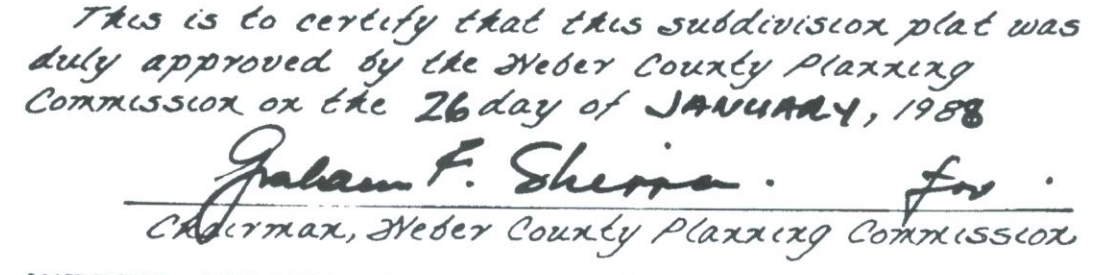 This is to certify that this subdivision plat was
duly approved by the Weber County Planning
Commission on the 26 day of JANUARY, 1988
Graham F. Shirra. for.
Chairman, Weber County Planning Commission